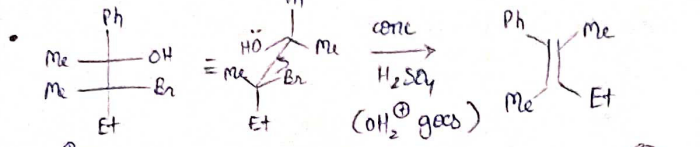 Ph
Me OH
Me Br
Et
≡
HÖ Me
Me Br
Et
conc
H₂SO₄
(OH₂⊕ goes)
Ph Me
Me Et